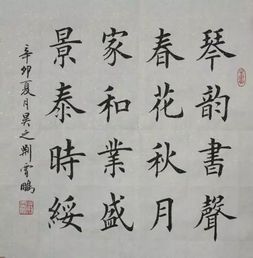 琴韵書聲
春花秋月
家和業盛
景泰時綏
辛卯夏月吴之荆雲鵬